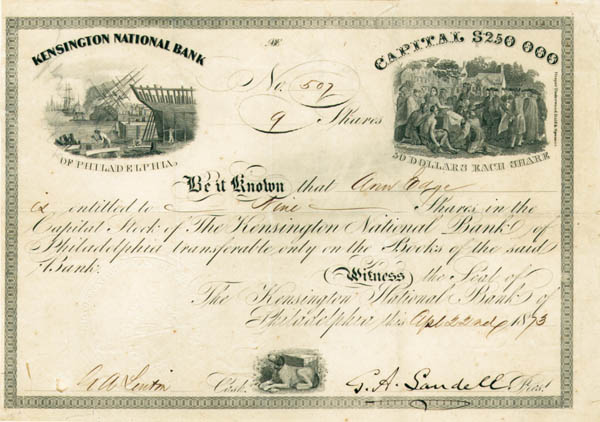 KENSINGTON NATIONAL BANK
OF PHILADELPHIA.
CAPITAL $250 000
50 DOLLARS EACH SHARE
No. 507
9 Shares
Be it Known that Ann
is entitled to Nine Shares in the
Capital Stock of The Kensington National Bank of
Philadelphia transferable only on the Books of the said
Bank.
Witness the Seal of
The Kensington National Bank of
Philadelphia this Apl 22nd 1873
Cash. G. A. Landell Prest.